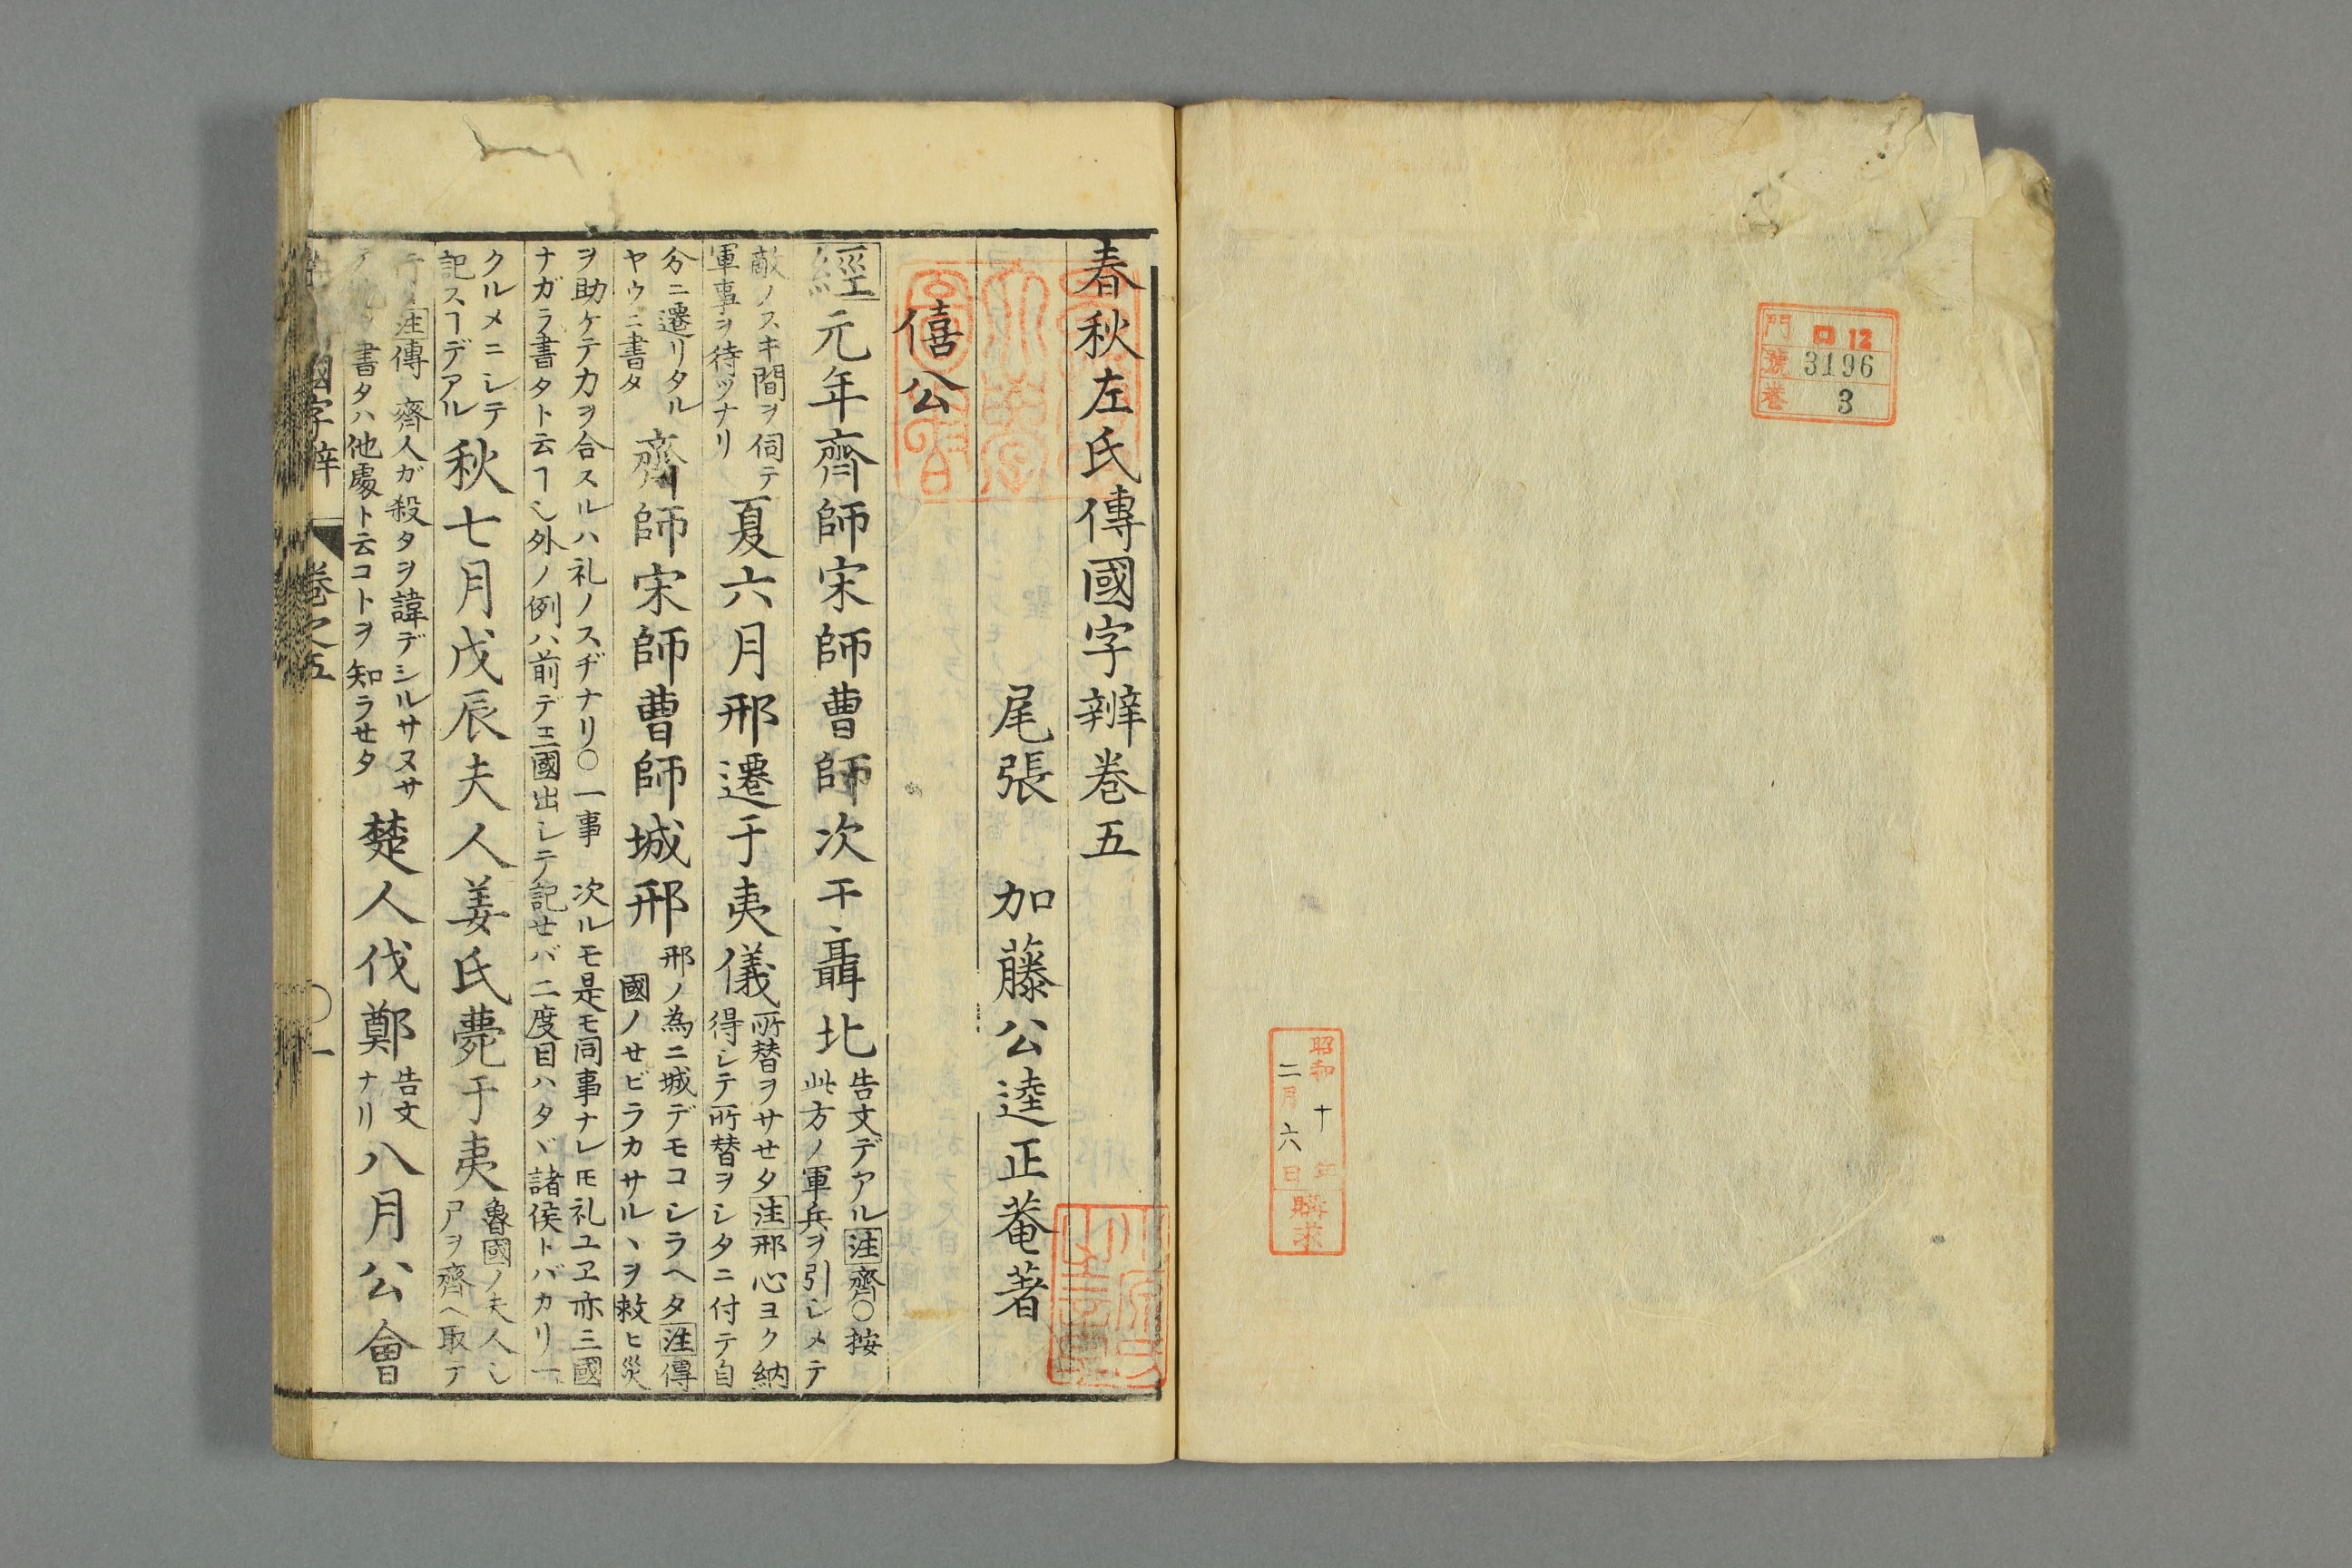 門 ロ 12
號 3196
巻 3
昭和十年
二月六日
購求
春秋左氏傳國字辨巻五
尾張 加藤公逵正菴著
僖公
經元年齊師宋師曹師次于聶北
告文デアル注齊○按
此方ノ軍兵ヲ引シメテ
敵ノスキ間ヲ伺テ
軍事ヲ待ツナリ
夏六月邢遷于夷儀
所替ヲサセタ注邢心ヨク納
得シテ所替ヲシタニ付テ自
分ニ遷リタル
ヤウニ書タ
齊師宋師曹師城邢
邢ノ為ニ城デモコシラヘタ注傳
國ノセビラカサルヽヲ救ヒ災
ヲ助ケテ力ヲ合スルハ礼ノスヂナリ○一事 次ルモ是モ同事ナレ𪜈礼ユヱ亦三國
ナガラ書タト云ヿ乄外ノ例ハ前デ三國出シテ記セバ二度目ハタヾ諸侯トバカリ
クルメニシテ
記スヿデアル
秋七月戊辰夫人姜氏薨于夷
魯國ノ夫人乄
尸ヲ齊ヘ取テ
注傳 齊人ガ殺タヲ諱デシルサヌサ
書タハ他處ト云コトヲ知ラセタ
楚人伐鄭
告文
ナリ
八月公會
國字辨 巻之五 一